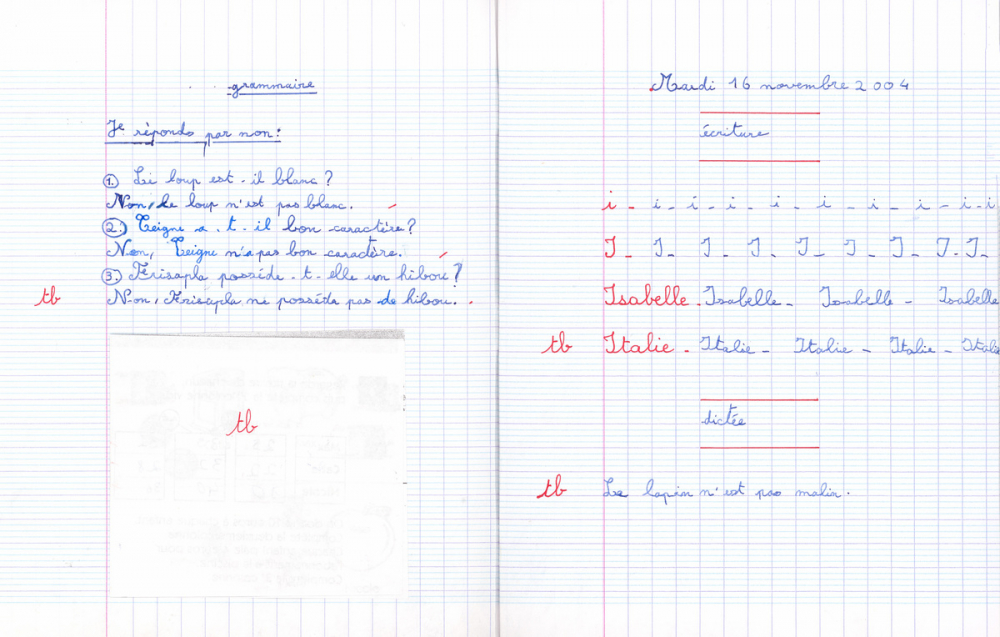 grammaire
Je réponds par non :
1. Le loup est-il blanc ?
Non, le loup n'est pas blanc.
2. Teigne a-t-il bon caractère ?
Non, Teigne n'a pas bon caractère.
3. Frisapla possède-t-elle un hibou ?
tb Non, Frisapla ne possède pas de hibou.
tb
Mardi 16 novembre 2004
écriture
i - i - i - i - i - i - i - i - i - i
I - I - I - I - I - I - I - I - I -
Isabelle - Isabelle - Isabelle - Isabelle
tb Italie - Italie - Italie - Italie - Italie
dictée
tb Le lapin n'est pas malin.